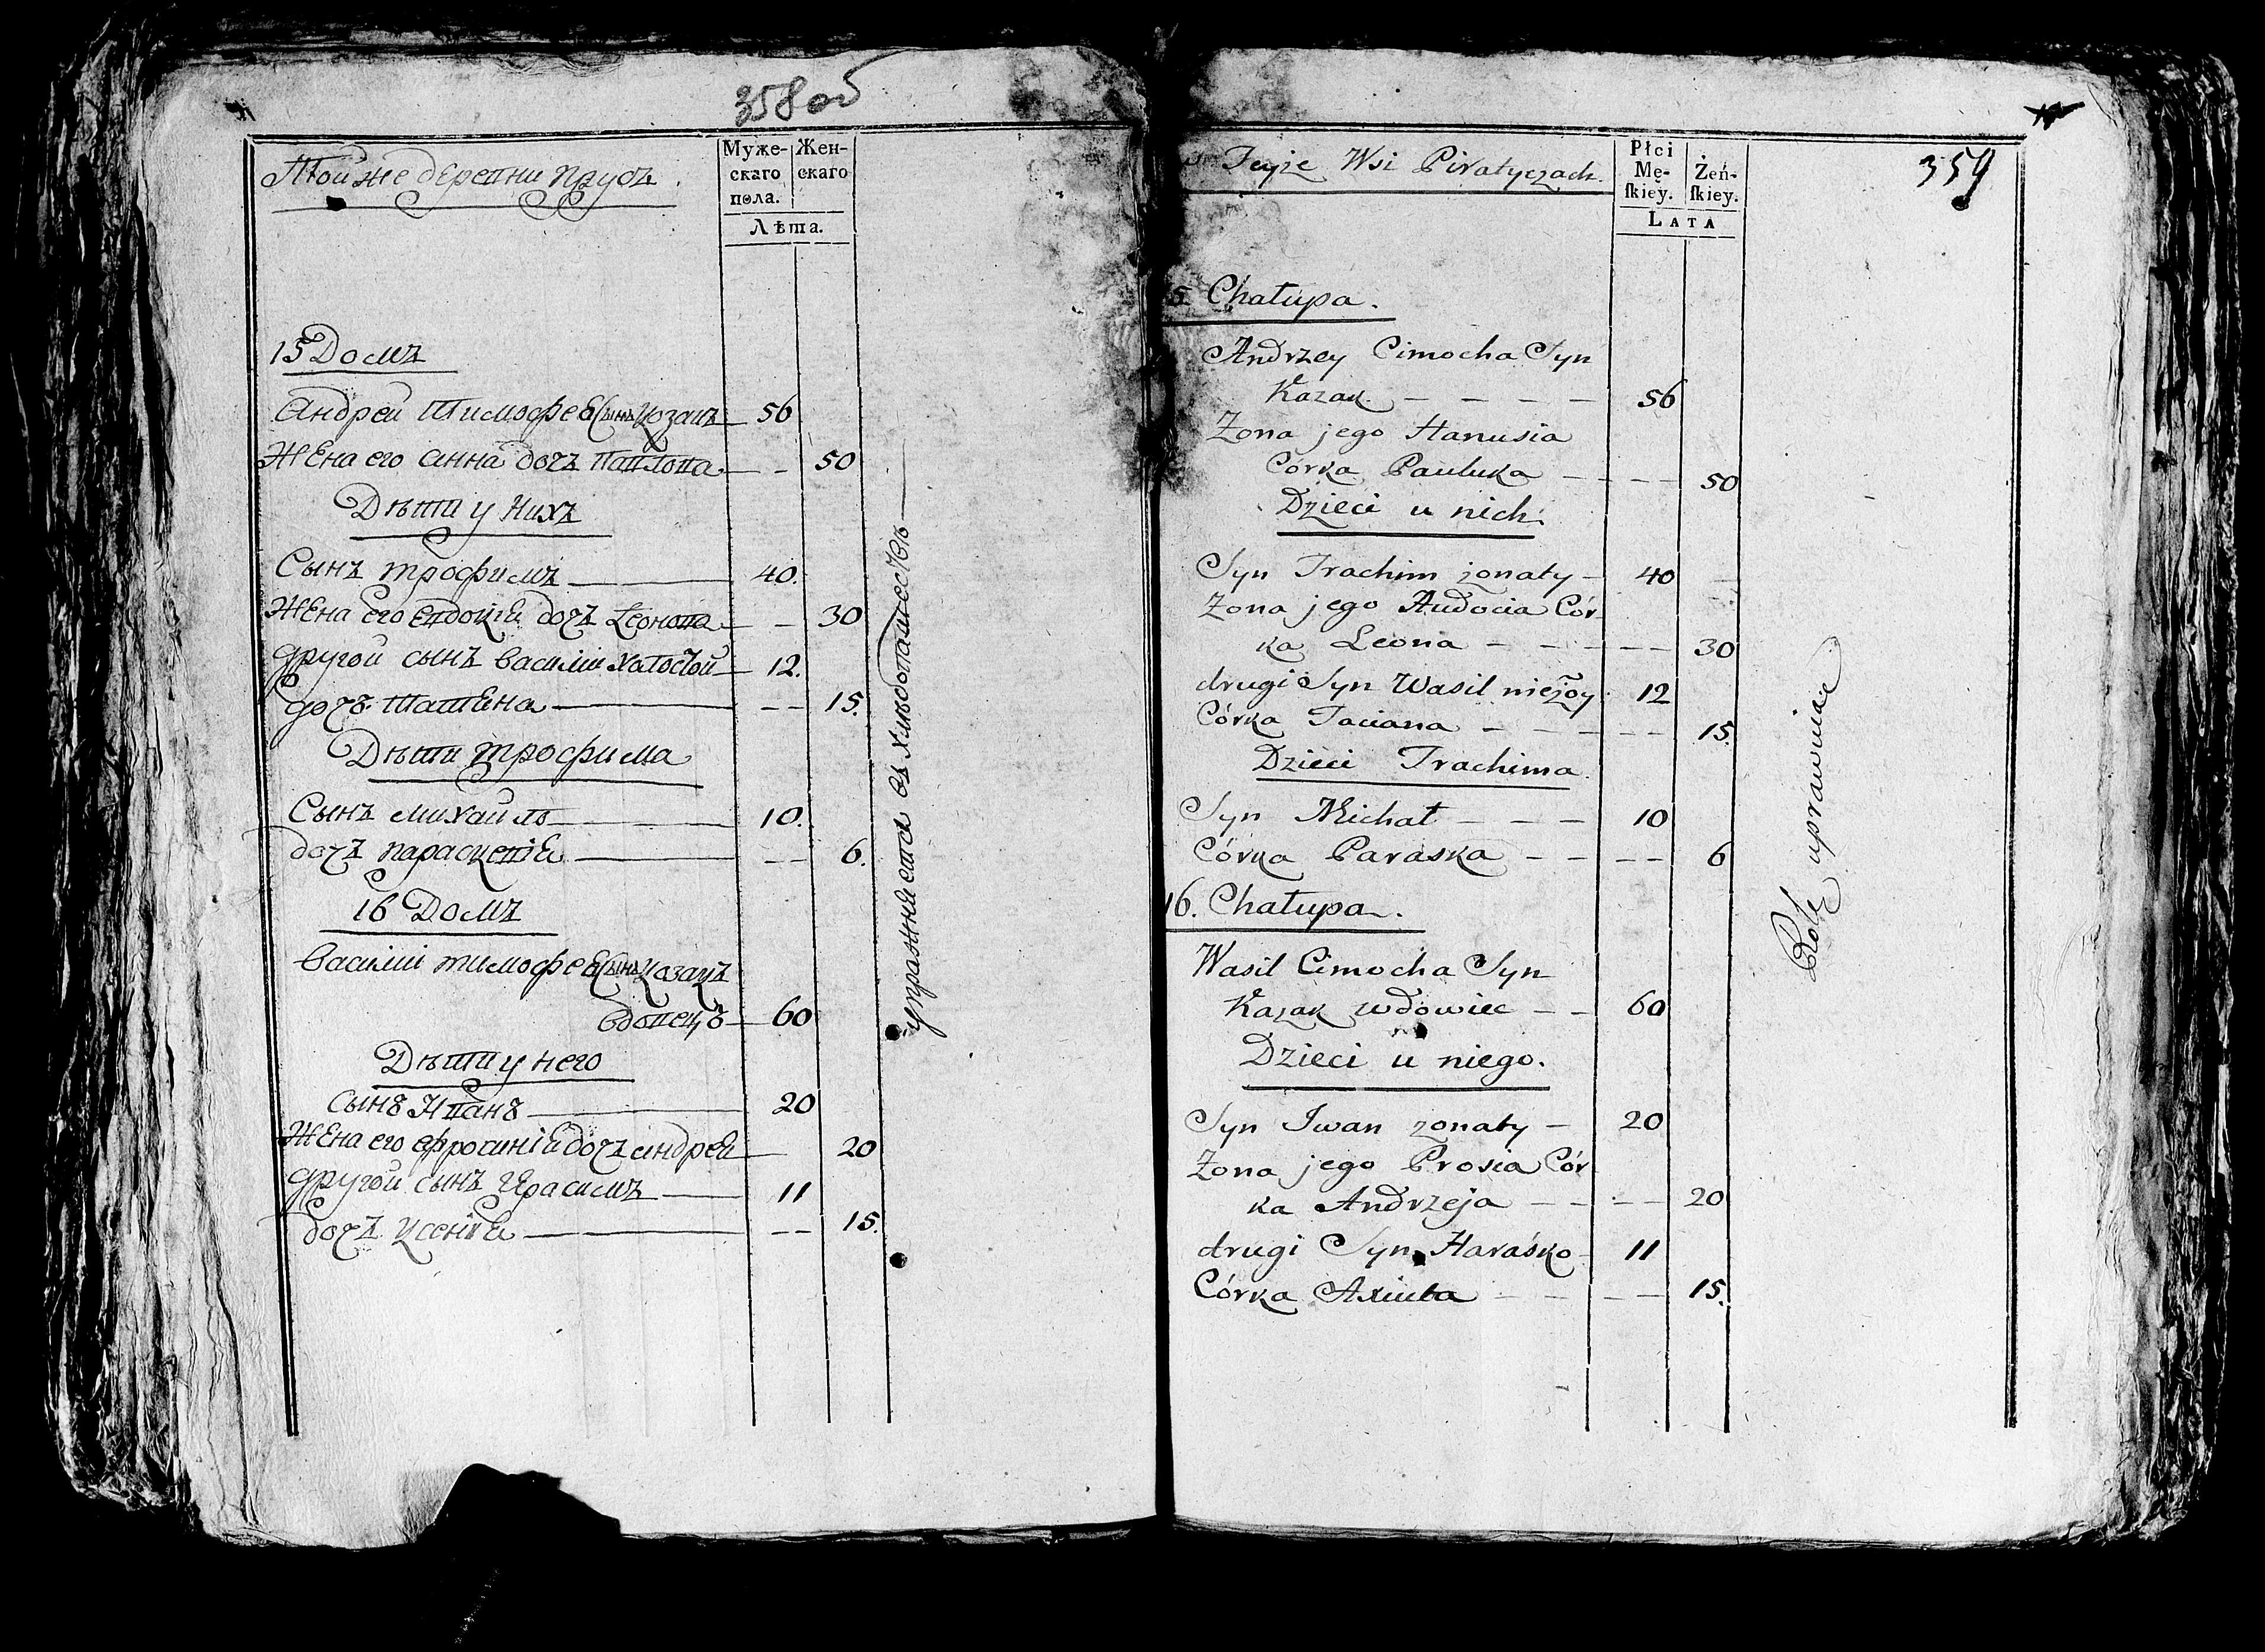 358 об
Той же деревни Прусъ.
Муже-
скаго
пола.
Жен-
скаго
Лѣта.
15 Домъ
Андрей Тимофеев Сынъ Козакъ — 56
Жена его Анна дочъ Павлова — — 50
Дѣти у нихъ
Сынъ Трофимъ — 40.
Жена его Евдокія дочъ Леонова — — 30
Другой сынъ Василій холостой — 12.
Дочъ Татяна — — — 15.
Дѣти Трофима
Сынъ Михайло — 10.
дочъ Парасковія — — — 6.
16 Домъ
Василій Тимофеев Сынъ Козакъ
вдовецъ — 60
Дѣти у него
Сынъ Иванъ — 20
Жена его Ефросинія дочъ Андрея — 20
Другой сынъ Герасимъ — 11
дочъ Ксенія — — — 15.
упражняется въ хлебопашествѣ —
359
Teyże Wsi Piratyczach.
Płci
Mę-
ſkiey.
Żeń-
ſkiey.
LATA
5 Chałupa.
Andrzey Cimocha Syn
Kazak — — — — 56
Zona jego Hanusia
Córka Pauluka — — — — 50
Dzieci u nich.
Syn Trachim zonaty — 40
Zona jego Audocia Cór-
ka Leona — — — — — 30
drugi Syn Wasil nieżoy. 12
Córka Taciana — — — — — 15.
Dzieci Trachima.
Syn Michał — — — 10
Córka Paraska — — — — 6
16. Chałupa.
Wasil Cimocha Syn
Kazak wdowiec — — 60
Dzieci u niego.
Syn Iwan zonaty — 20
Zona jego Prosia Cór-
ka Andrzeja — — — — 20
drugi Syn Haraśko — 11
Córka Axiuta — — — — 15.
Rolę uprawniaie